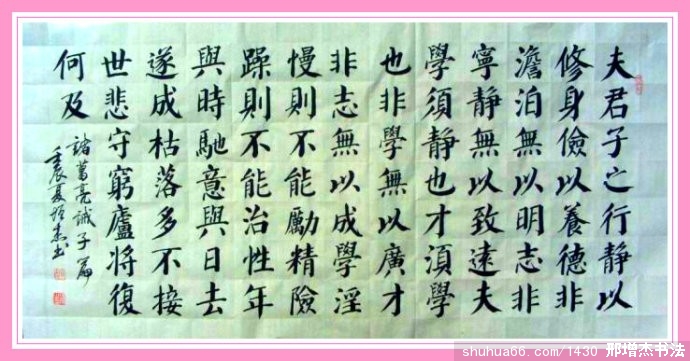 夫君子之行靜以
修身儉以養德非
澹泊無以明志非
寧靜無以致遠夫
學須靜也才湏學
也非學無以廣才
非志無以成學淫
慢則不能勵精險
躁則不能治性年
與時馳意與日去
遂成枯落多不接
世悲守窮廬将復
何及
諸葛亮誡子篇
壬辰夏增杰书
shuhua66.com/1430 邢增杰书法